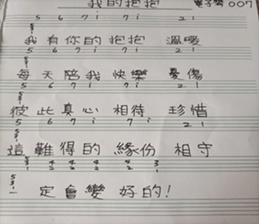 我的抱抱 電子琴 007
5 6 7 i 7 i 2 i
我有你的抱抱 溫暖
5 6 7 i 7 i 2 i
每天陪我快樂 憂傷
5 6 7 i 7 i 2 i
彼此真心相待 珍惜
5 6 7 i 7 i 2 i
這難得的緣份 相守
一定會變好的!